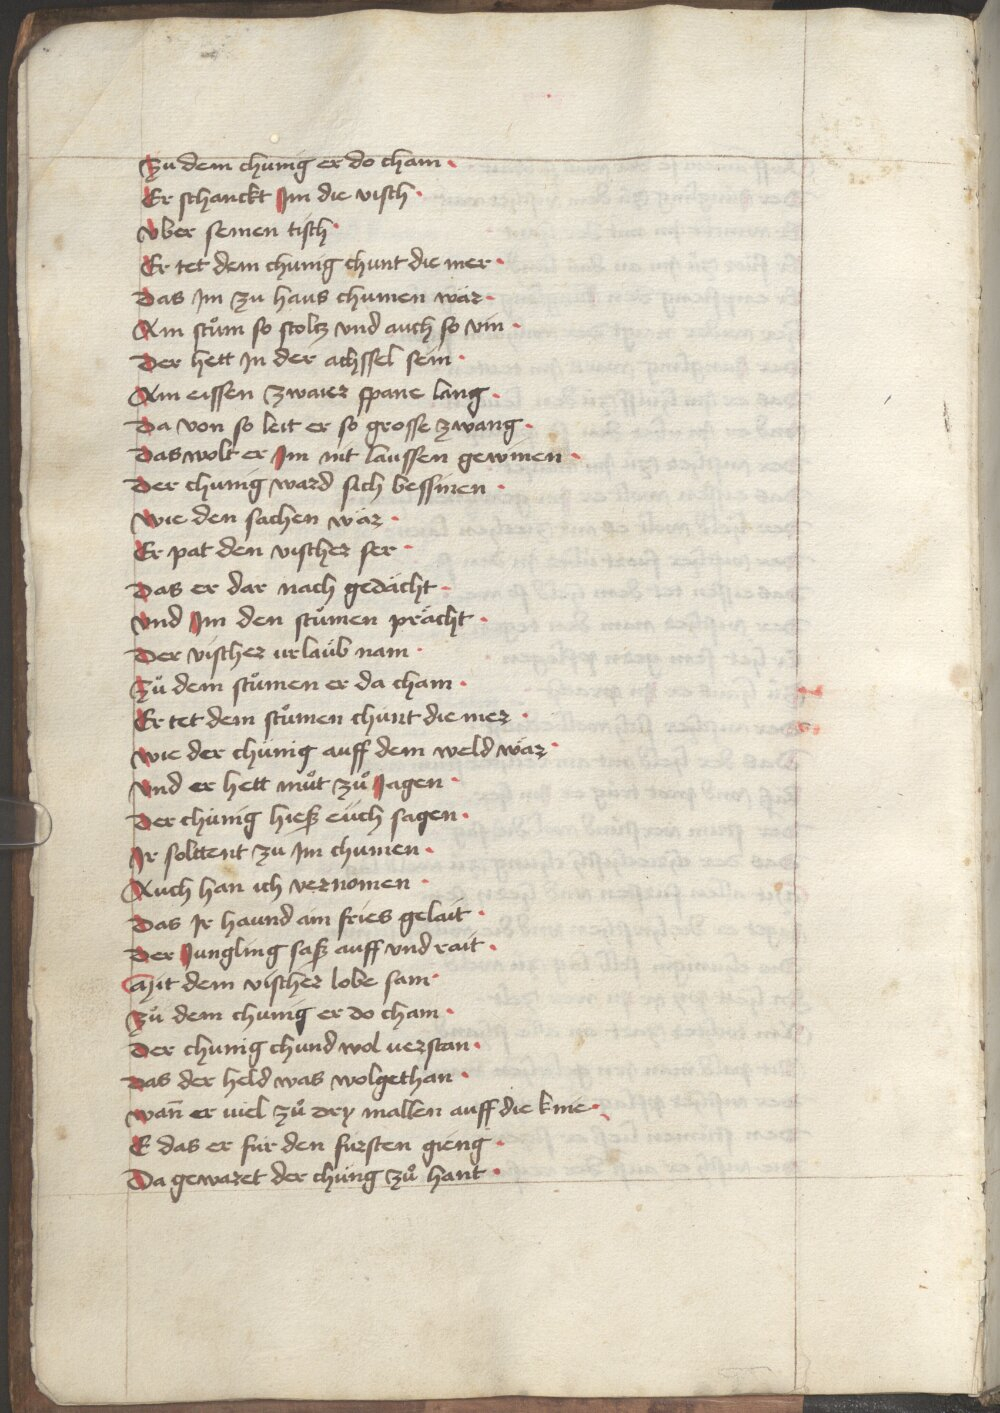 Zu dem chunig er do cham ·
Er schanckt Im die visch ·
Vber seinen tisch ·
Er tet dem chunig chunt die mer ·
Das Im zu haus chumen wär ·
Ain stům so stoltz vnd auch so vin ·
Der hett In der achssel sein ·
Ain eissen zwaier spane lang ·
Da von so leit er so grosse zwang ·
Das wolt er Im nit laussen gewinen ·
Der chunig ward sich bessinen ·
Wie den sachen wär ·
Er pat den vischer ser ·
Das er dar nach gedächt ·
Vnd Im den stůmen prächt ·
Der vischer urlaub nam ·
Zů dem stůmen er da cham ·
Er tet dem stůmen chunt die mer ·
Wie der chunig auff dem weld wär ·
Vnd er hett můt zů Jagen ·
Der chünig hieß eüch sagen ·
Ir solttent zu Im chumen ·
Auch han ich vernomen ·
Das Ir haund ain fries gelait ·
Der Jungling saß auff vnd rait ·
Mit dem vischer lobe sam ·
Zů dem chunig er do cham ·
Der chunig chund wol verstan ·
Das der held was wolgethan ·
Wan̄ er viel zů dry mallen auff die knie ·
E das er für den fürsten gieng ·
Da gewaret der chüng zů hant ·